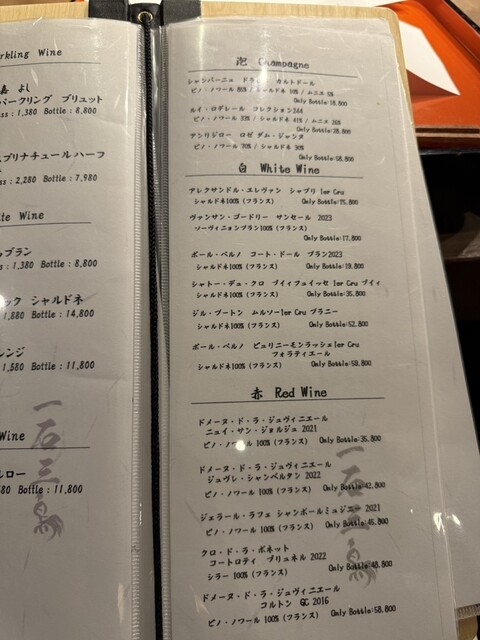 rkling Wine
嘉 よし
パークリング ブリュット
ss : 1,380 Bottle : 8,800
スプリナチュールハーフ
ss : 2,280 Bottle : 7,980
ite Wine
ブラン
1,380 Bottle : 8,800
ック シャルドネ
1,880 Bottle : 14,800
レンジ
1,580 Bottle : 11,800
Wine
ルロー
80 Bottle : 11,800
一石三鳥
泡 Champagne
シャンパーニュ カルトドール
ピノ・ノワール 80% / シャルドネ 15% / ムニエ 5%
Only Bottle:18.800
ルイ・ロデレール コレクション244
ピノ・ノワール 33% / シャルドネ 41% / ムニエ 26%
Only Bottle:28.800
アンリジロー ロゼ ダム・ジャンヌ
ピノ・ノワール 70% / シャルドネ 30%
Only Bottle:58.800
白 White Wine
アレクサンドル・エレヴァン シャブリ 1er Cru
シャルドネ100%(フランス) Only Bottle:15.800
ヴァンサン・ゴードリー サンセール 2023
ソーヴィニョンブラン100%(フランス)
Only Bottle:17.800
ポール・ペルノ コート・ドール ブラン2023
シャルドネ100%(フランス) Only Bottle:19.800
シャトー・デュ・クロ プイィフュイッセ 1er Cru プイィ
シャルドネ100%(フランス) Only Bottle:35.800
ジル・ブートン ムルソー1er Cru ブラニー
シャルドネ100%(フランス) Only Bottle:52.800
ポール・ペルノ ピュリニーモンラッシェ1er Cru
フォラティエール
シャルドネ100%(フランス) Only Bottle:59.800
赤 Red Wine
ドメーヌ・ド・ラ・ジュヴィニエール
ニュイ・サン・ジョルジュ 2021
ピノ・ノワール 100%(フランス) Only Bottle:35.800
ドメーヌ・ド・ラ・ジュヴィニエール
ジュヴレ・シャンベルタン 2022
ピノ・ノワール 100%(フランス) Only Bottle:42.800
ジェラール・ラフェ シャンボールミュジニー 2021
ピノ・ノワール 100%(フランス) Only Bottle:45.800
クロ・ド・ラ・ボネット
コートロティ プリュネル 2022
シラー 100%(フランス) Only Bottle:48.800
ドメーヌ・ド・ラ・ジュヴィニエール
コルトン GC 2016
ピノ・ノワール 100%(フランス) Only Bottle:58.800
一石三鳥